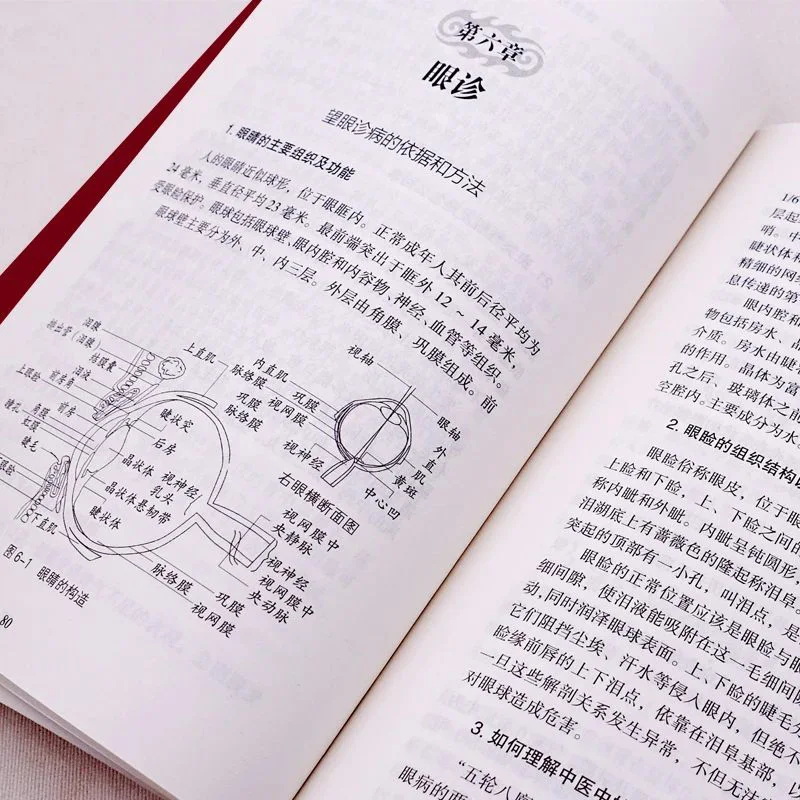 第六章
眼诊
望眼诊病的依据和方法
1. 眼睛的主要组织及功能
人的眼睛近似球形，位于眼眶内。正常成年人其前后径平均为
24毫米，垂直径平均23毫米。最前端突出于眶外12～14毫米，
受眼睑保护。眼球包括眼球壁、眼内腔和内容物、神经、血管等组织。
眼球壁主要分为外、中、内三层。外层由角膜、巩膜组成。前
泪腺
排出管（泪腺）
结膜囊
泪液
上眼睑
前房角
睫毛
角膜
前房
虹膜
睫毛
下直肌
上直肌
脉络膜
巩膜
视网膜
睫状突
后房
晶状体
视神经
乳头
晶状体悬韧带
睫状体
脉络膜
巩膜
视网膜
视网膜中
央静脉
视神经
视网膜中
央动脉
内直肌
巩膜
视网膜
脉络膜
视神经
视轴
眼轴
外直肌
黄斑
中心凹
右眼横断面图
图6-1 眼睛的构造
80
1/6
层起
哨。中
睫状体和
精细的网络
息传递的第
眼内腔和
物包括房水、晶
介质。房水由睫
的作用。晶体为富
孔之后、玻璃体之前
空腔内。主要成分为水
2. 眼睑的组织结构
眼睑俗称眼皮，位于眼
上睑和下睑，上、下睑之间的
称内眦和外眦。内眦呈钝圆形，
泪湖底上有蔷薇色的隆起称泪阜。
突起的顶部有一小孔，叫泪点，是
眼睑的正常位置应该是眼睑与眼
细间隙，使泪液能吸附在这一毛细间隙
动，同时润泽眼球表面。上、下睑的睫毛
它们阻挡尘埃、汗水等侵入眼内，但绝不
睑缘前唇的上下泪点，依靠在泪阜基部，以
一旦这些解剖关系发生异常，不但无法
对眼球造成危害。
3. 如何理解中医中
“五轮八廓
眼病的两